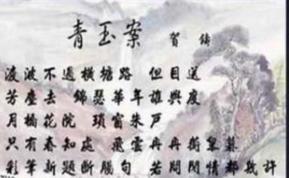 青玉案 賀鑄
凌波不過橫塘路 但目送
芳塵去 錦瑟華年誰與度
月橋花院 瑣窗朱戶
只有春知處 飛雲冉冉蘅皋暮
彩筆新題斷腸句 若問閒情都幾許